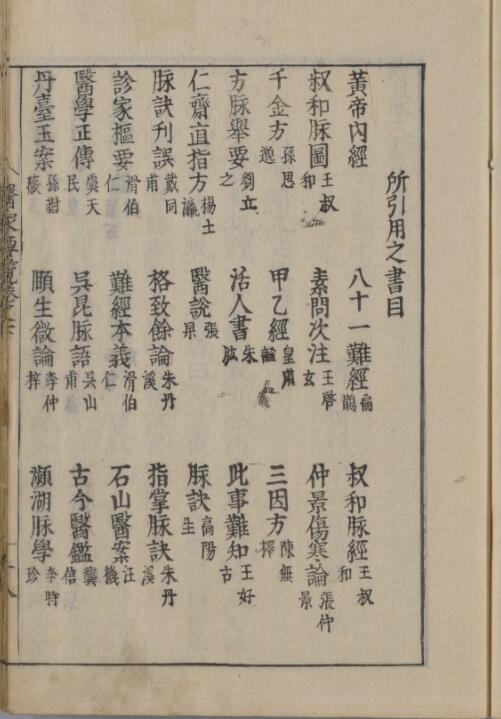 所引用之書目
黃帝內經 八十一難經 扁鵲 叔和脉經 王叔和
叔和脉圖 王叔和 素問次注 王啓玄 仲景傷寒論 張仲景
千金方 孫思邈 甲乙經 皇甫謐 三因方 陳無擇
方脉舉要 劉立之 活人書 朱肱 此事難知 王好古
仁齋直指方 楊士瀛 醫說 張杲 脉訣 高陽生
脉訣刋誤 戴同甫 格致餘論 朱丹溪 指掌脉訣 朱丹溪
診家樞要 滑伯仁 難經本義 滑伯仁 石山醫案 汪機
醫學正傳 虞天民 吳昆脉語 吳山甫 古今醫鑑 龔信
丹臺玉案 孫對薇 頤生微論 李仲梓 瀕湖脉學 李時珍